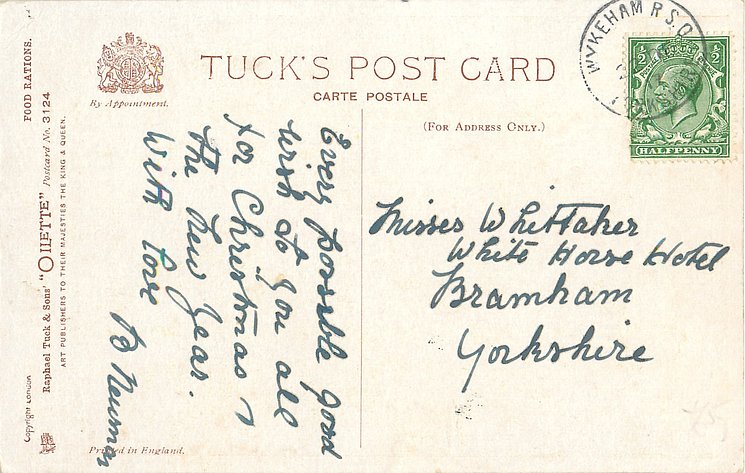 TUCK'S POST CARD
CARTE POSTALE
(FOR ADDRESS ONLY.)
By Appointment.
FOOD RATIONS.
Raphael Tuck & Sons' "OILETTE" Postcard No. 3124
ART PUBLISHERS TO THEIR MAJESTIES THE KING & QUEEN.
Copyright London
Printed in England.
WYKEHAM R.S.O
½ ½
HALFPENNY
Every possible good
wish to you all
for Christmas &
the New Year.
With love
B Newman
Misses Whittaker
White Horse Hotel
Bramham
Yorkshire